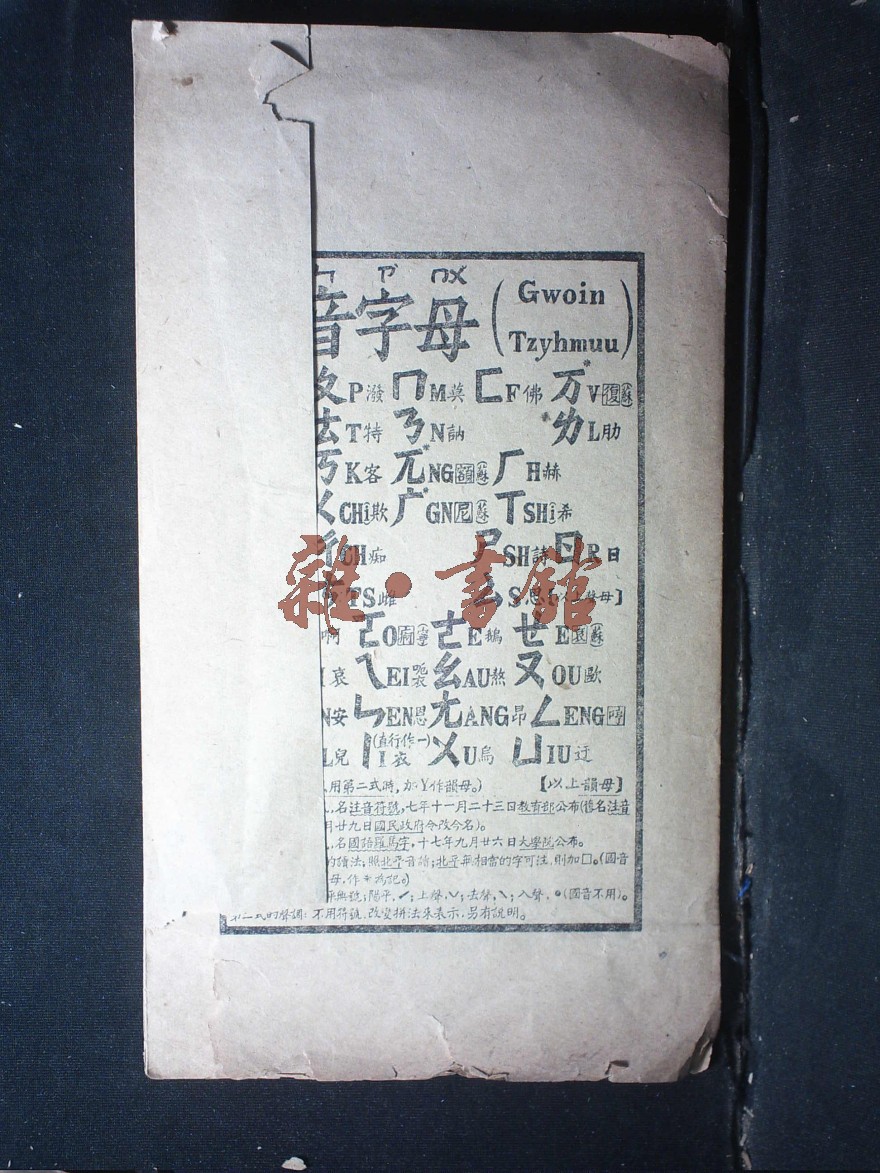 ㄗˋ ㄇㄨ
音字母 (Gwoin Tzyhmuu)
ㄆ P 潑 ㄇ M 莫 ㄈ F 佛 万 V 復 蘇
ㄊ T 特 ㄋ N 訥 ㄌ L 肋
ㄎ K 客 兀 NG 額 蘇 ㄏ H 赫
ㄑ CHi 欺 广 GN 尼 蘇 ㄒ SHi 希
ㄔ CH 痴 ㄕ SH 詩 ㄖ R 日
ㄘ TS 雌 ㄙ S 思 聲母】
啊 ㄛ O ㄜ E 鵝 ㄝ E 蘇
I 哀 ㄟ EI ㄠ AU 熬 ㄡ OU 歐
N 安 ㄣ EN 恩 ㄤ ANG 昂 ㄥ ENG
L 兒 (直行作一) 丨 I 衣 ㄨ U 烏 ㄩ IU 迂
用第二式時,加丫作韻母。) 【以上韻母】
名注音符號,七年十一月二十三日教育部公布(舊名注音
月廿九日國民政府令改今名)。
名國語羅馬字,十七年九月廿六日大學院公布。
的讀法;照北平音讀;北平無相當的字可注,則加口。(國音
母,作＊為記。)
無號;陽平,ˊ;上聲,ˇ;去聲,ˋ;入聲,•(國音不用)。
第二式的聲調:不用符號,改變拼法來表示,另有說明。
雜·書館